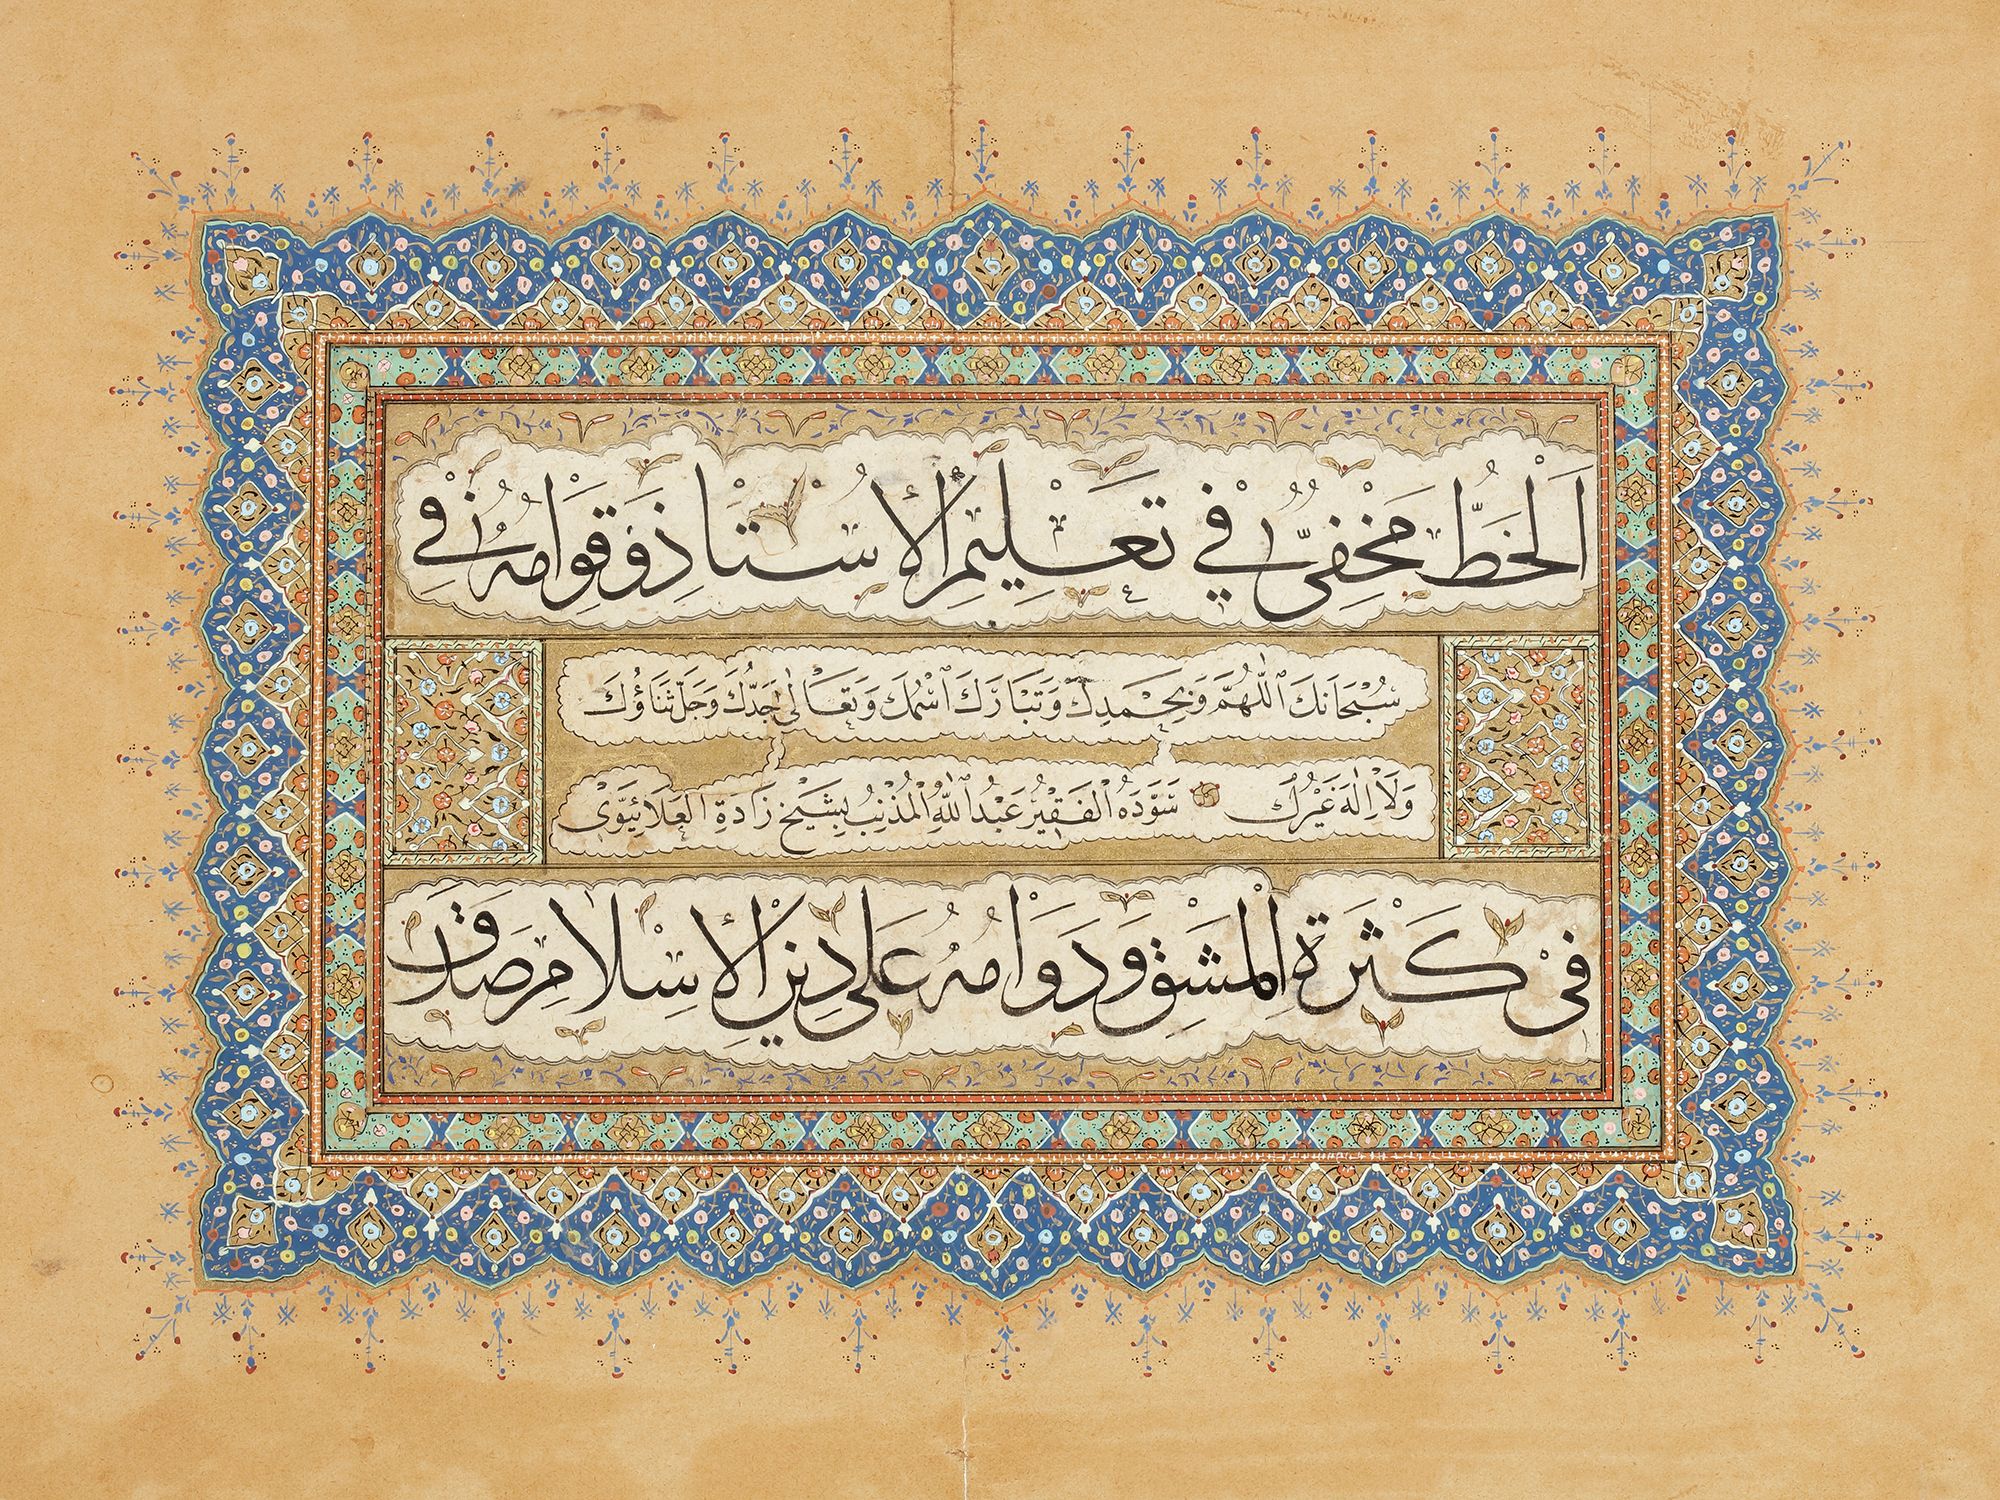 اَلْخَطُّ مَخْفِىٌّ فِي تَعْلِيمِ الْأُسْتَاذِ وَقِوَامُهُ فِي
سُبْحَانَكَ ٱللّٰهُمَّ وَبِحَمْدِكَ وَتَبَارَكَ ٱسْمُكَ وَتَعَالٰى جَدُّكَ وَجَلَّ ثَنَاؤُكَ
وَلَا اِلٰهَ غَيْرُكَ سَوَّدَهُ الْفَقِيْرُ عَبْدُ ٱللّٰهِ الْمُذْنِبُ بِشَيْخ زَادَةِ الْعَلَائِيَّوِى
فِى كَثْرَةِ الْمَشْقِ وَدَوَامُهُ عَلٰى دِينِ الْإِسْلَامِ صَدَقَ